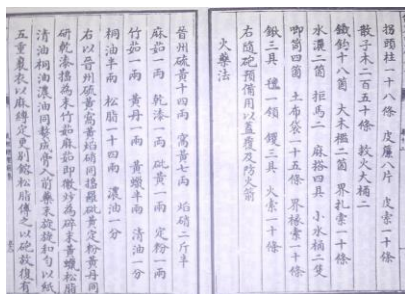 拐頭柱一十八條 皮簾八片 皮索一十條
散子木二百五十條 救火大桶二
鐵鈎十八箇 大木檻二箇 界扎索一十條
水濃二箇 拒馬二 麻搭四具 小水桶二隻
唧筒四箇 土布袋一十五箇 界椽索一十條
鍬三具 氊一領 钁三具 火索一十條
右隨砲預備用以蓋覆及防火箭
火藥法
晉州硫黃十四兩 窩黃七兩 焰硝二斤半
麻茹一兩 乾漆一兩 砒黃一兩 定粉一兩
竹茹一兩 黃丹一兩 黃蠟半兩 清油一分
桐油半兩 松脂一十四兩 濃油一分
右以晉州硫黃窩黃焰硝同搗羅砒黃定粉黃丹同
研乾漆搗為末竹茹麻茹即微炒為碎末黃蠟松脂
清油桐油濃油同熬成膏入前藥末旋旋和勻以紙
五重裹衣以麻縛定更別鎔松脂傅之以砲放復有